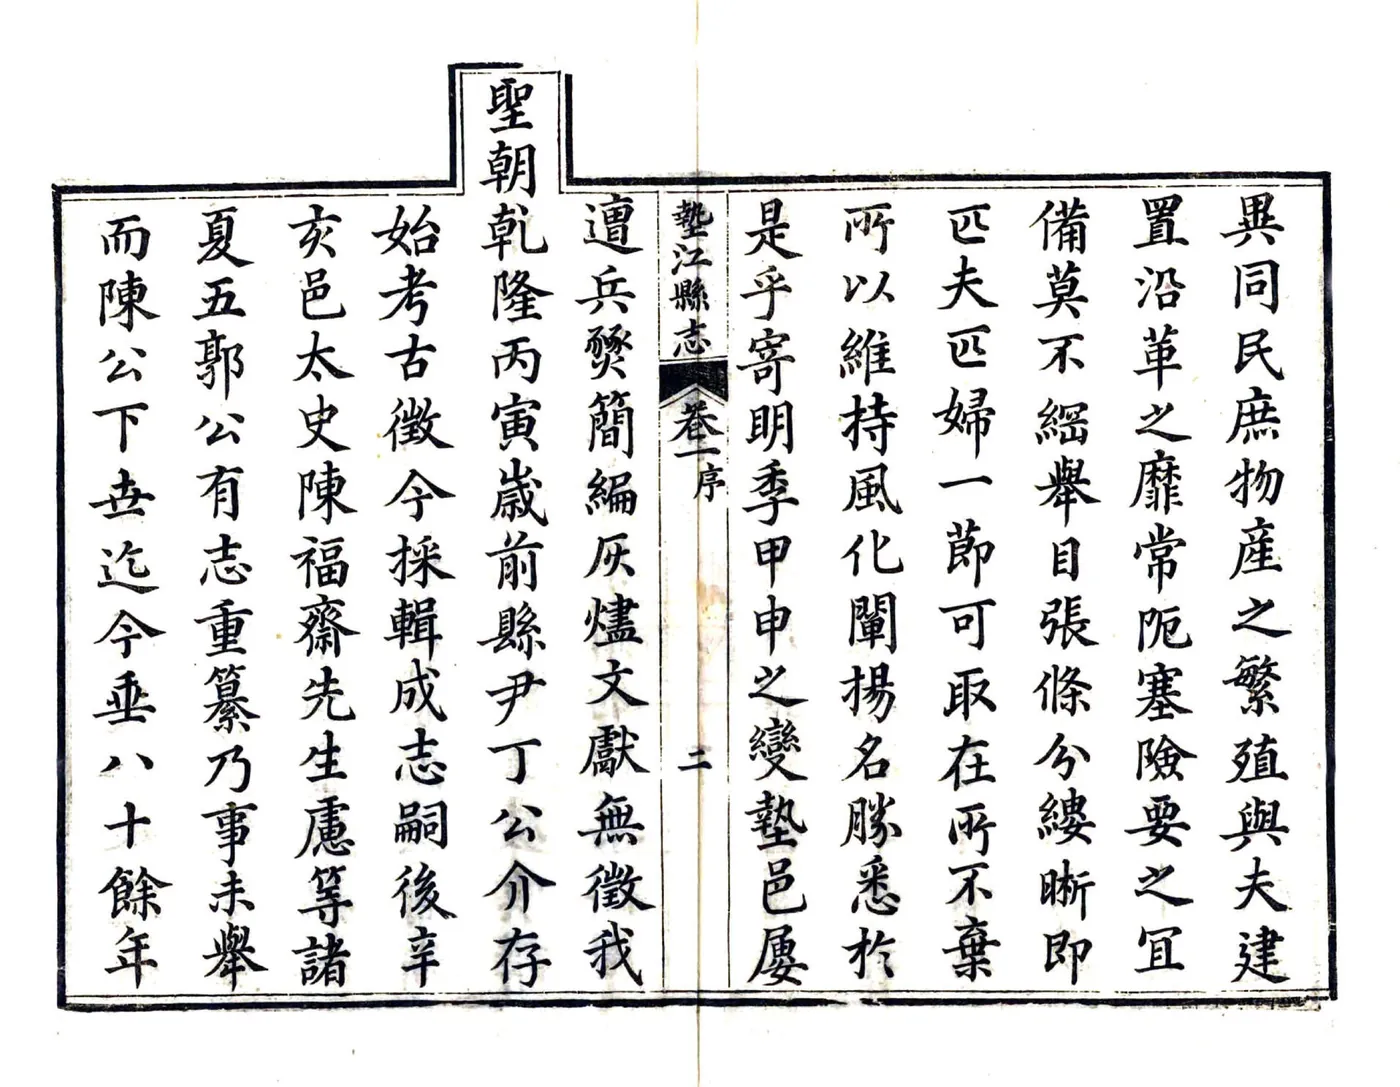 異同民庶物産之繁殖與夫建
置沿革之靡常阨塞險要之冝
備莫不綱舉目張條分縷晰即
匹夫匹婦一節可取在所不棄
所以維持風化闡揚名勝悉於
是乎寄明季甲申之變墊邑屢
墊江縣志
卷一
序
二
遭兵燹簡編灰燼文獻無徵我
聖朝乾隆丙寅歲前縣尹丁公介存
始考古徵今採輯成志嗣後辛
亥邑太史陳福齋先生慮等諸
夏五郭公有志重纂乃事未舉
而陳公下世迄今垂八十餘年